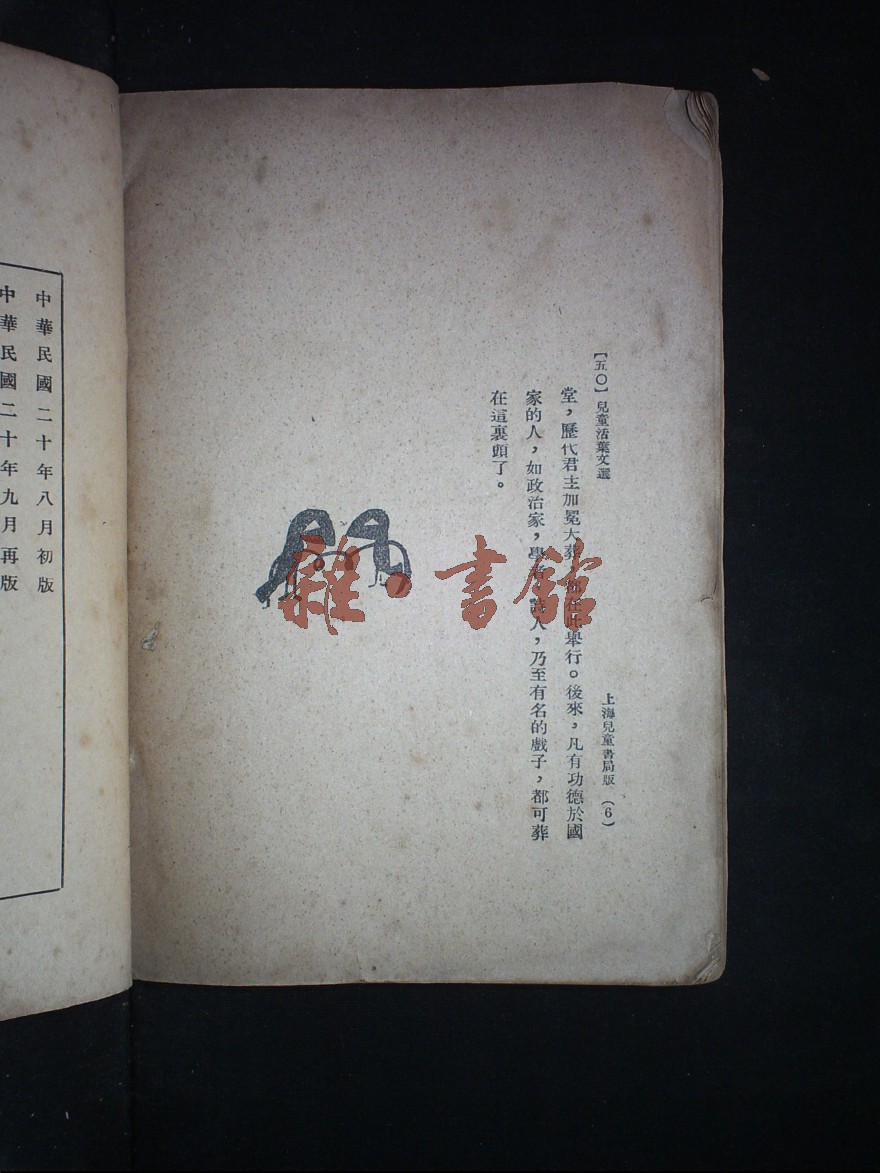 [五〇] 兒童活葉文選 上海兒童書局版 (6)
堂，歷代君主加冕大葬，都在此舉行。後來，凡有功德於國
家的人，如政治家，學者，詩人，乃至有名的戲子，都可葬
在這裏頭了。
雜·書館
中華民國二十年八月初版
中華民國二十年九月再版